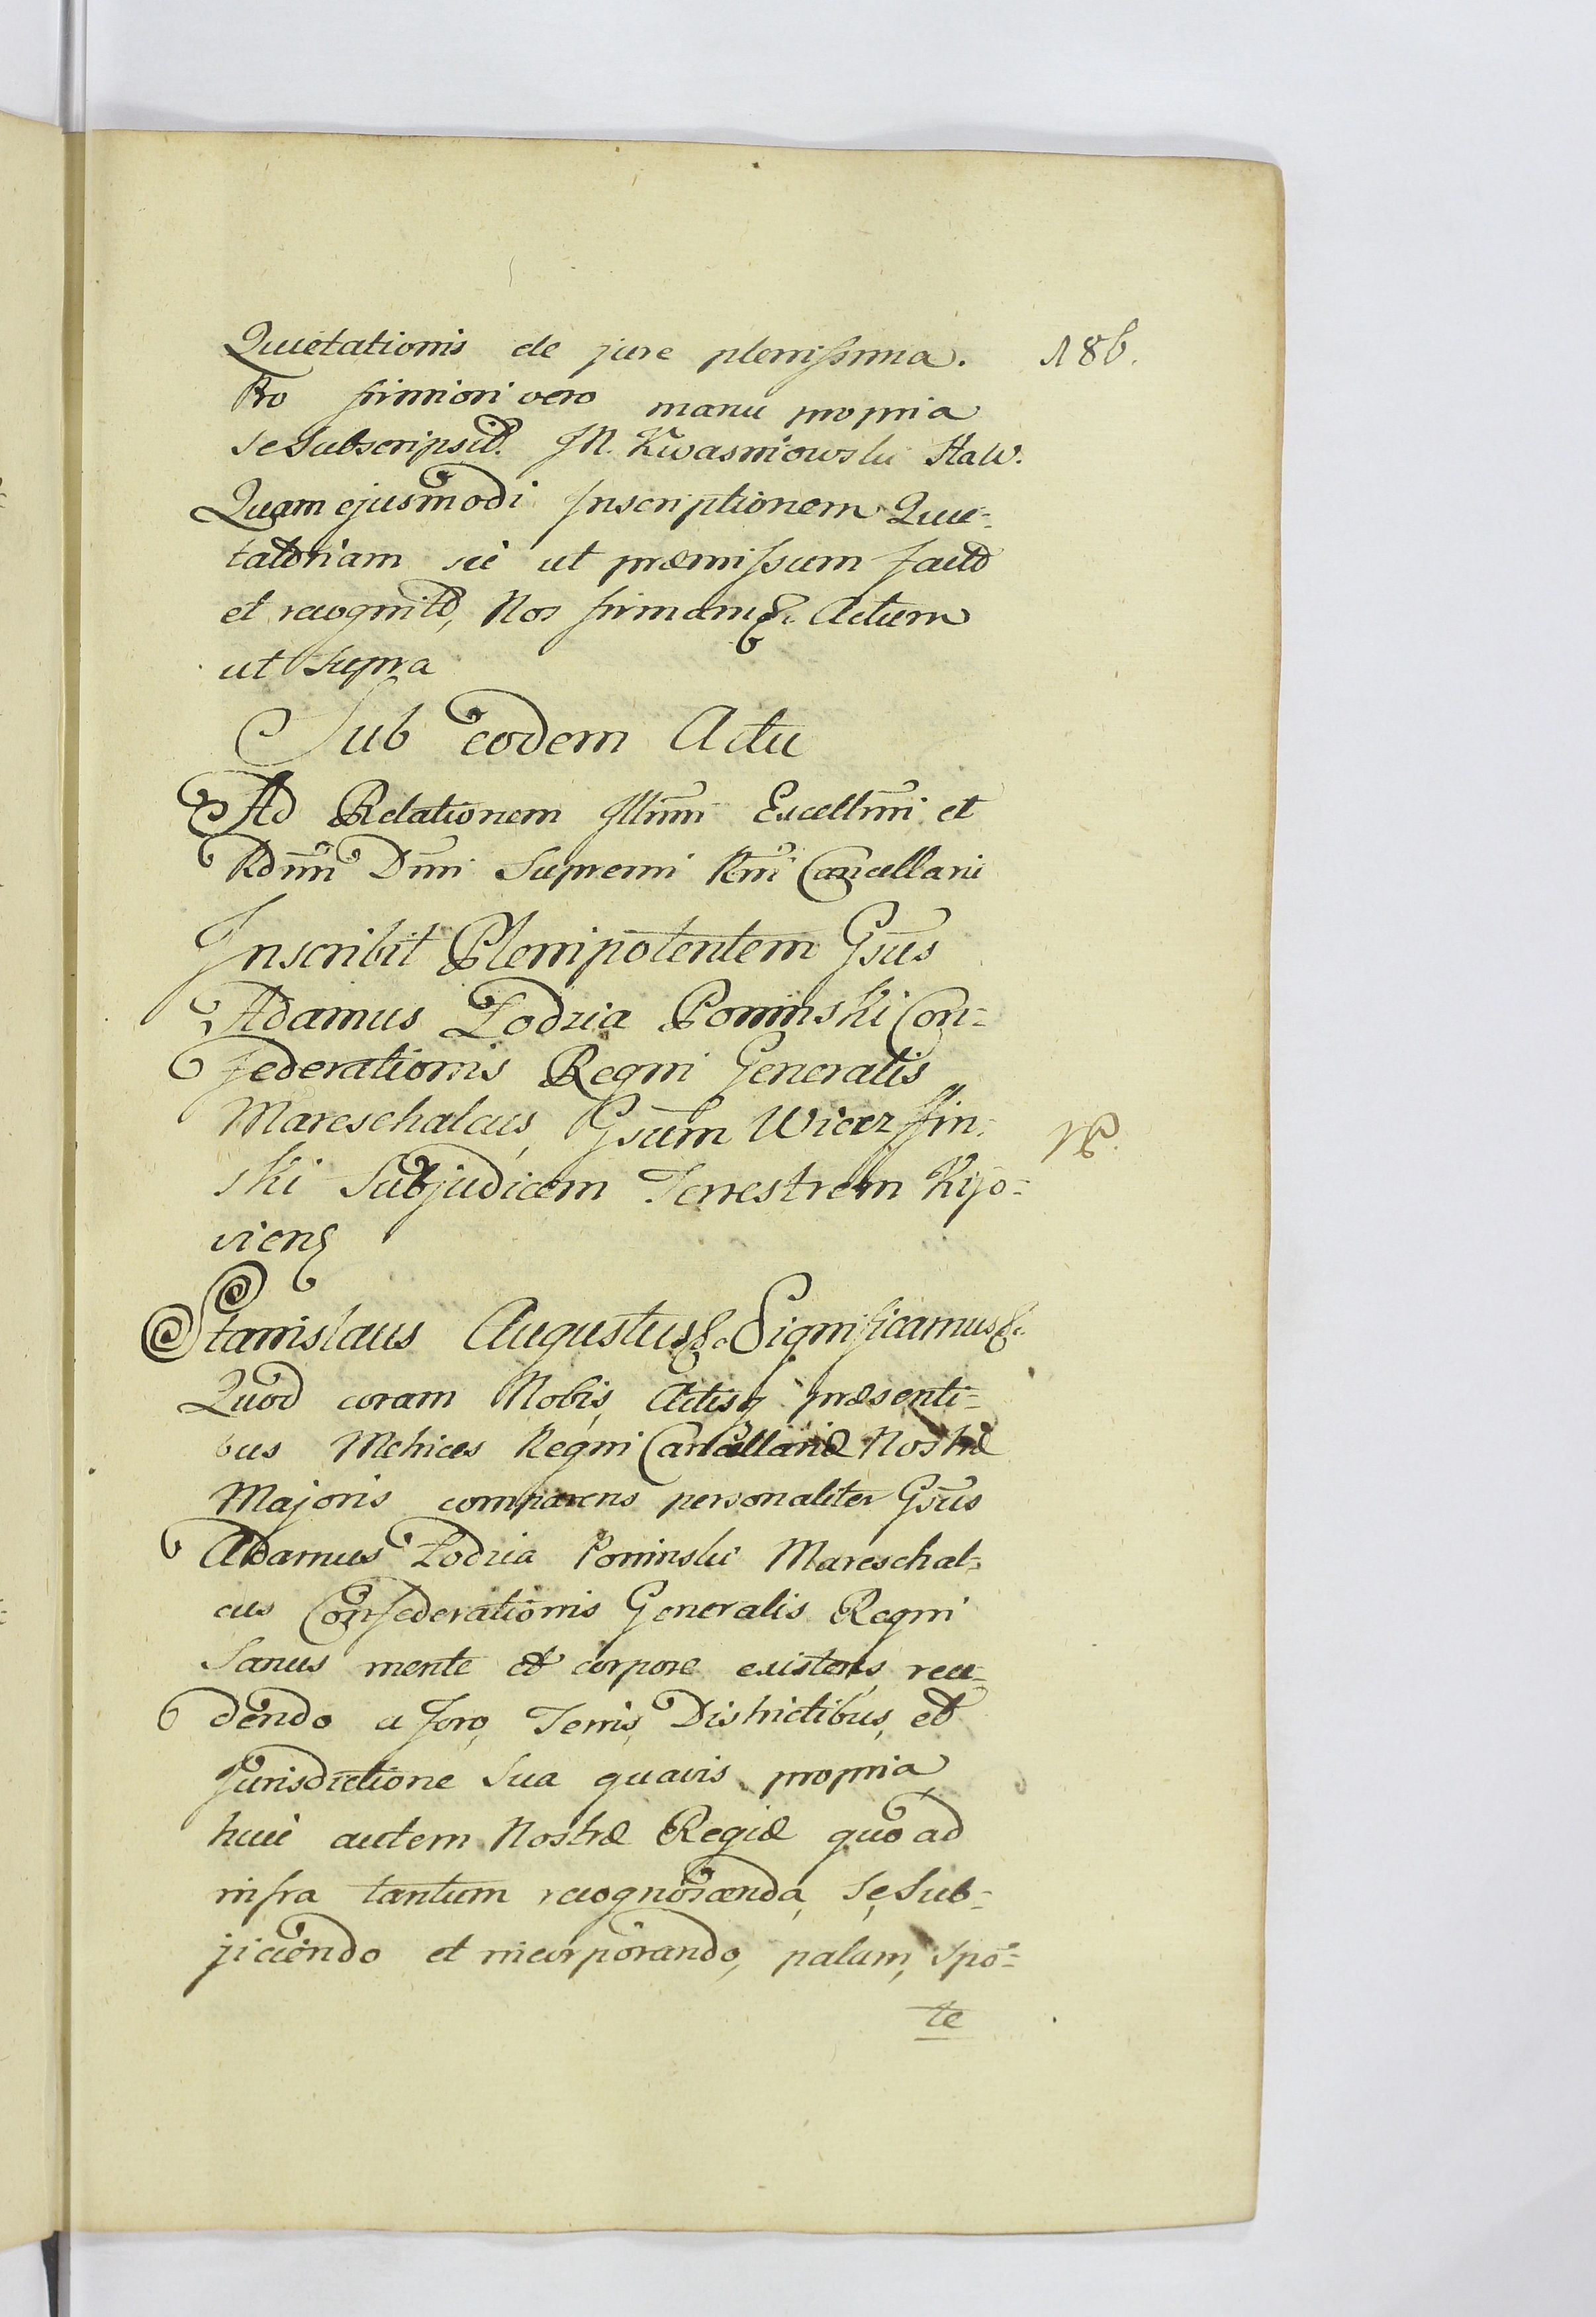 Quietationis de jure plenissima. 186.
Pro firmiori vero manu propria
se subscripsit. M. Kwasniowski
Quam ejusmodi Inscriptionem Quie-
tatoriam sic ut præmissum facto
et recognito, Nos firmam &. Actum
ut Supra
Sub eodem Actu
Ad Relationem Illmi Excellmi et
Rdmi Dmi Supremi Rni Cancellarii
Inscribit Plenipotentem Gsus
Adamus Łodzia Poninski Con-
federationis Regni Generalis
Mareschalcus, Gsum Wierzssin-
ski Subjudicem Terrestrem Kijo-
viens
Stanislaus Augustus &. Significamus &.
Quod coram Nobis, Actisq præsenti-
bus Metrices Regni Cancellariæ Nostræ
Majoris comparens personaliter Gsus
Adamus Łodzia Poninski Mareschal-
cus Confederationis Generalis Regni
Sanus mente et corpore existens, rece-
dendo a foro, Terris, Districtibus, et
Jurisdictione Sua quavis propria
huic autem Nostræ Regiæ quo ad
infra tantum recognoscenda, se, Sub-
jiciendo et incorporando, palam, spō-
te